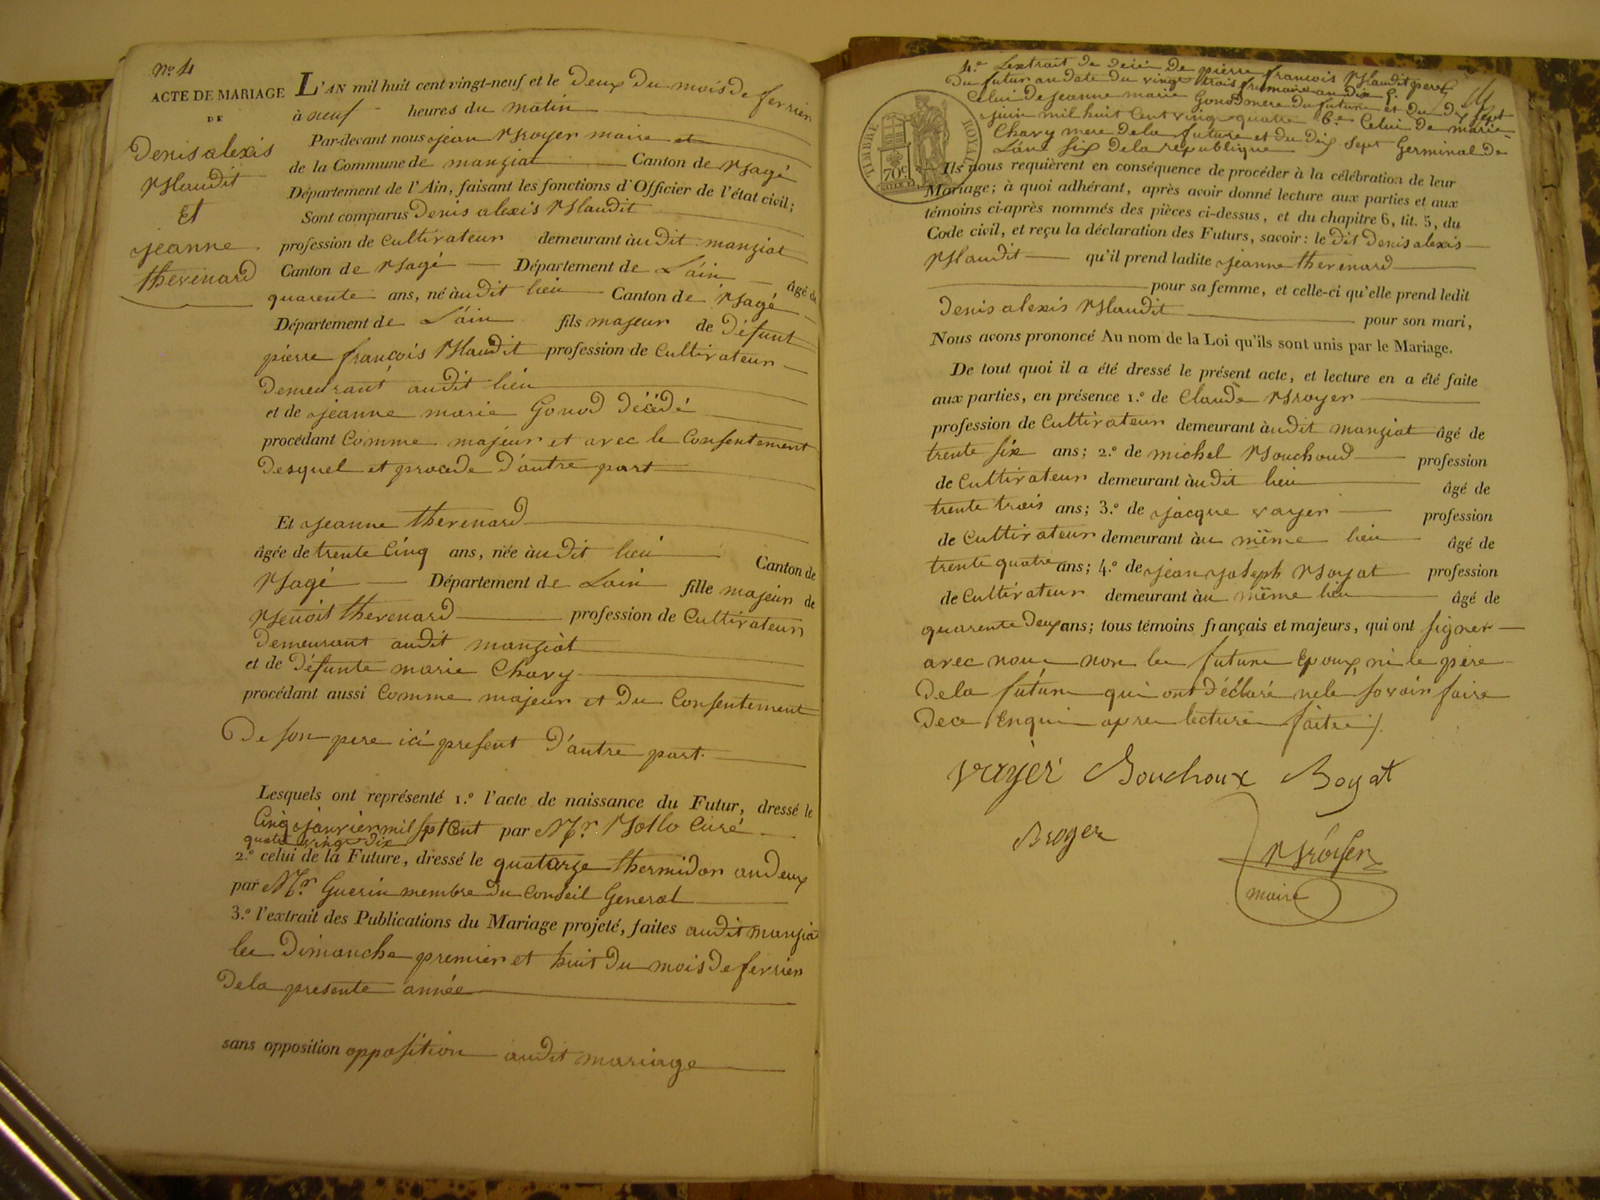 No 4
ACTE DE MARIAGE
DE
Denis alexis
Blaudit
Et
jeanne
thevenard
L'AN mil huit cent vingt-neuf et le Deux du mois de fevrier
à neuf heures du matin
Par-devant nous jean Broyer maire et
de la Commune de manziat Canton de Bagé
Département de l'Ain, faisant les fonctions d'Officier de l'état civil;
Sont comparus Denis alexis Blaudit
profession de Cultivateur demeurant àudit manziat
Canton de Bagé Département de L'ain âgé de
quarente ans, né àudit lieu Canton de Bagé
Département de L'ain fils majeur de Défunt
pierre françois Blaudit profession de Cultivateur
Demeurant audit lieu
et de jeanne marie Gonod Décédé
procédant Comme majeur et avec le Consentement
Desquel et procede D'autre part
Et jeanne thevenard
âgée de trente Cinq ans, née àudit lieu Canton de
Bagé Département de Lain fille majeur de
Benoit thevenard profession de Cultivateur
Demeurant audit manziat
et de Défunte marie Chavy
procédant aussi Comme majeur et Du Consentement
De son pere ici present D'autre part.
Lesquels ont représenté 1.º l'acte de naissance du Futur, dressé le
Cinq janvier mil sept Cent par Mr. Bollo Curé
quatre vingt Dix
2.º celui de la Future, dressé le quatorze thermidor an deux
par Mr Guerin membre du Conseil General
3.º l'extrait des Publications du Mariage projeté, faites audit manzia
les Dimanche premier et huit Du mois De fevrier
De la presente année
sans opposition opposition audit mariage
4.º L'extrait de décé De pierre françois Blaudit pere
Du futur au date du vingt trois frumaire an dix 5.º
Celui de jeanne marie Gonod mere du future et du Dix sept
juin mil huit Cent vingt quatre 6.º Celui de marie
Chavy mere de la future et du Dix sept Germinal de
L'ane six de la republique
TIMBRE ROYAL
70c
Ils nous requièrent en conséquence de procéder à la célébration de leur
Mariage; à quoi adhérant, après avoir donné lecture aux parties et aux
témoins ci-après nommés des pièces ci-dessus, et du chapitre 6, tit. 5, du
Code civil, et reçu la déclaration des Futurs, savoir: le dit Denis alexis
Blaudit qu'il prend ladite jeanne thevenard
pour sa femme, et celle-ci qu'elle prend ledit
Denis alexis Blaudit pour son mari,
Nous avons prononcé Au nom de la Loi qu'ils sont unis par le Mariage.
De tout quoi il a été dressé le présent acte, et lecture en a été faite
aux parties, en présence 1.º de Claude Broyer
profession de Cultivateur demeurant àudit manziat âgé de
trente six ans; 2.º de michel Bouchoud profession
de Cultivateur demeurant àudit lieu âgé de
trente trois ans; 3.º de jacque voyer profession
de Cultivateur demeurant àu même lieu âgé de
trente quatre ans; 4.º de jean joseph Boyat profession
de Cultivateur demeurant àu même lieu âgé de
quarente Deux ans; tous témoins français et majeurs, qui ont signer
avec nous non les futurs Epoux, ni le père
De la future qui ont déclaré ne le savoir faire
De ce Enquis apres lecture faite
voyer Bouchoux Boyat
Broyer
Broyer
maire